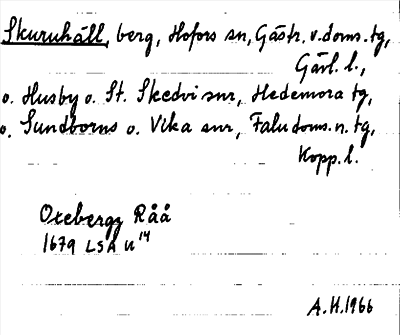 Skuruhäll, berg, Hofors sn, Gästr. v. doms. tg,
Gävl. l.,
o. Husby o. St. Skedvi snr, Hedemora tg,
o. Sundborns o. Vika snr, Falu doms. n. tg,
Kopp. l.
Oxebergz Råå
1679 LSA U 14
A.H. 1966